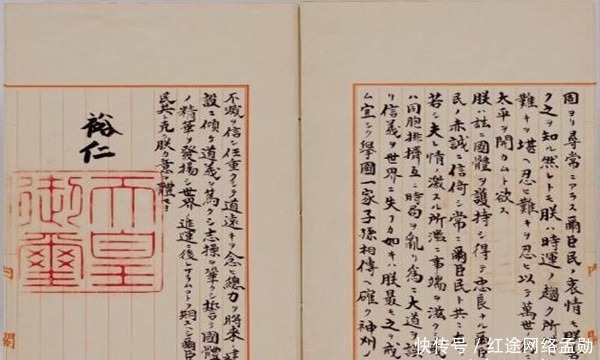 固ヨリ尋常ニアラス爾臣民ノ衷情モ朕
ク之ヲ知ル然レトモ朕ハ時運ノ趨ク所
難キヲ堪ヘ忍ヒ難キヲ忍ヒ以テ萬世ノ
太平ヲ開カムト欲ス
朕ハ茲ニ國體ヲ護持シ得テ忠良ナル
民ノ赤誠ニ信倚シ常ニ爾臣民ト共ニ在
若シ夫レ情ノ激スル所濫ニ事端ヲ滋クシ
ハ同胞排擠互ニ時局ヲ亂リ為ニ大道ヲ誤
リ信義ヲ世界ニ失フカ如キハ朕最モ之ヲ戒
ム宜シク擧國一家子孫相傳ヘ確ク神州ノ
不滅ヲ信シ任重クシテ道遠キヲ念ヒ總力ヲ將來ノ建
設ニ傾ケ道義ヲ篤クシ志操ヲ鞏クシ誓テ國體
ノ精華ヲ發揚シ世界ノ進運ニ後レサラムコトヲ期スヘシ爾臣
民其レ克ク朕カ意ヲ體セヨ
裕仁
天皇
御璽
快传号 / 红途网络孟勋